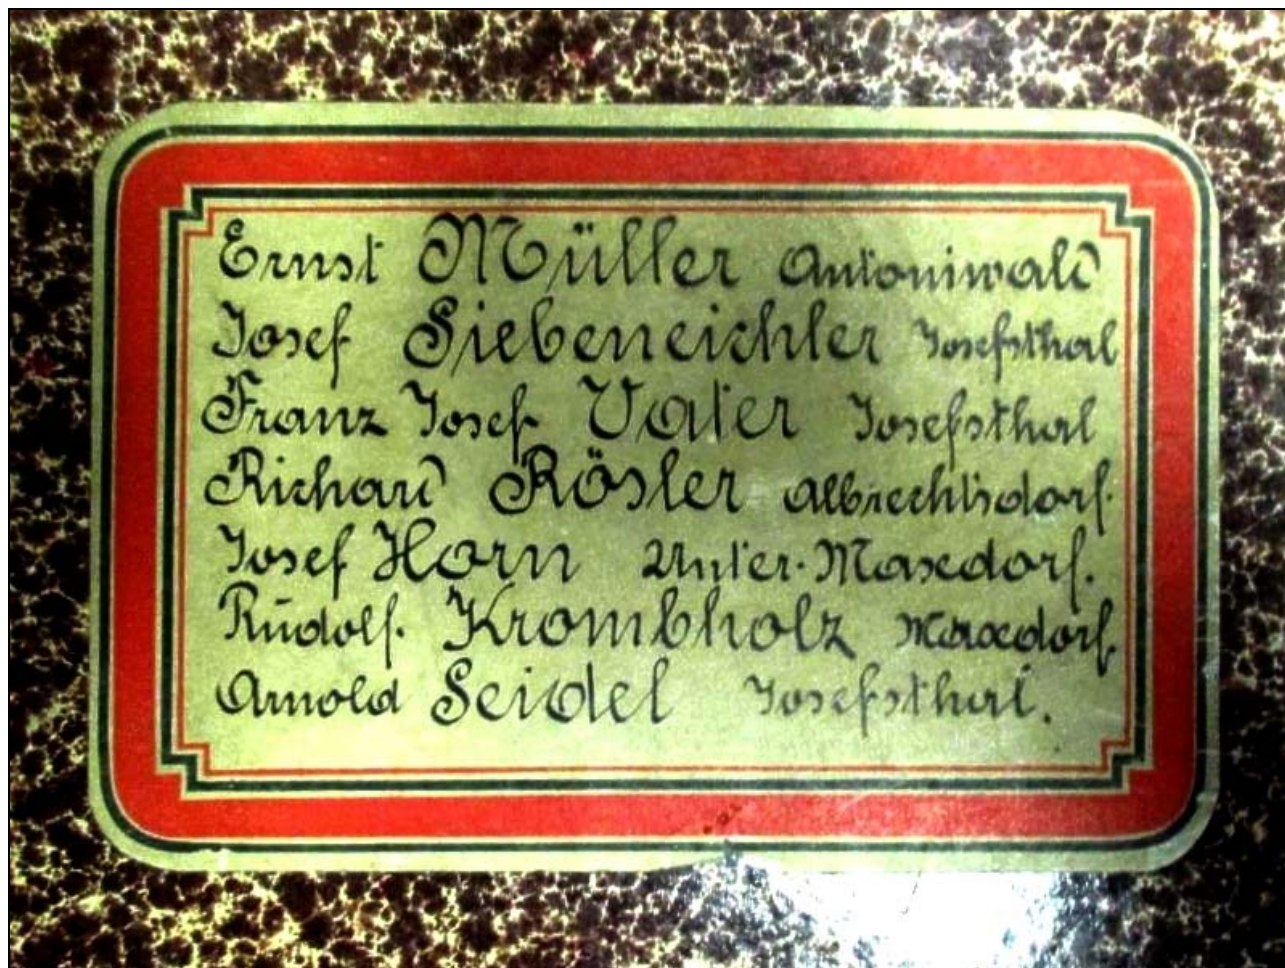 Ernst Müller Antoniwald
Josef Siebeneichler Josefsthal
Franz Josef Vater Josefsthal
Richard Rösler Albrechtsdorf.
Josef Horn Unter-Maxdorf.
Rudolf Krombholz Maxdorf
Arnold Seidel Josefsthal.